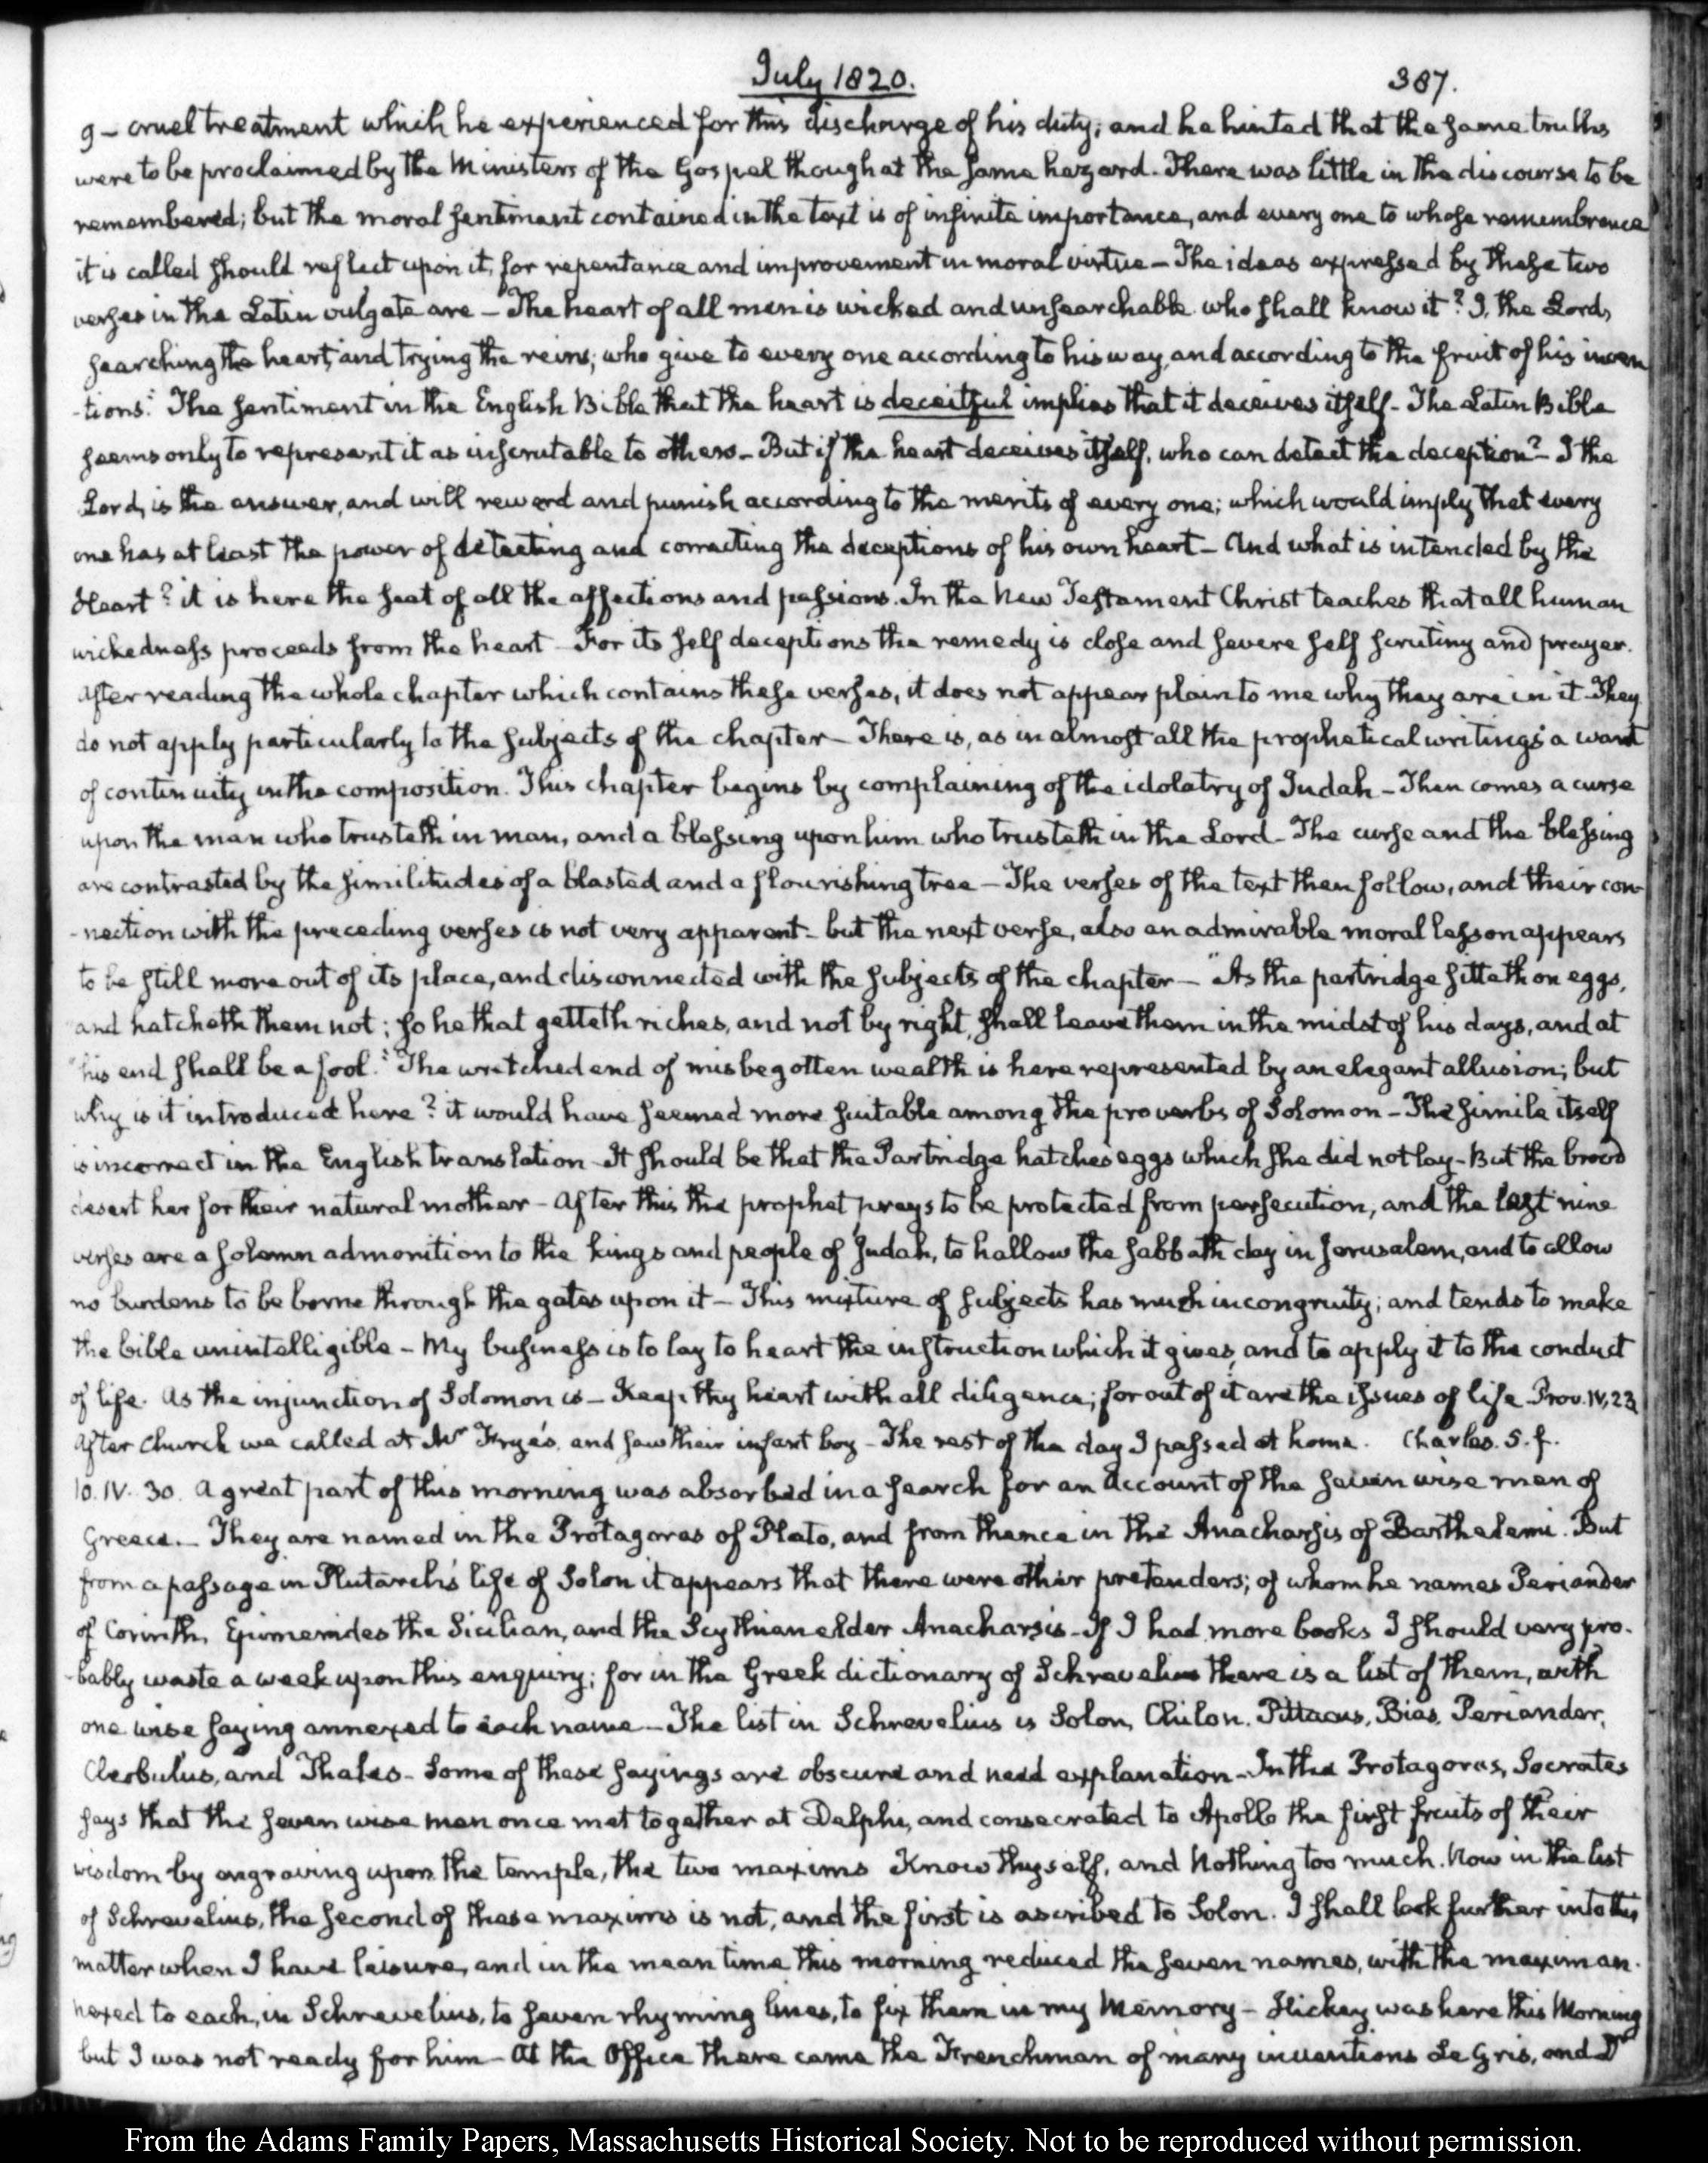 July 1820.
387.
9 - cruel treatment which he experienced for this discharge of his duty; and he hinted that the same truths
were to be proclaimed by the Ministers of the Gospel though at the same hazard. There was little in the discourse to be
remembered; but the moral sentiment contained in the text is of infinite importance, and every one to whose remembrance
it is called should reflect upon it, for repentance and improvement in moral virtue - The ideas expressed by these two
verses in the Latin vulgate are - The heart of all men is wicked and unsearchable. who shall know it? I, the Lord,
searching the heart, and trying the reins; who give to every one according to his way, and according to the fruit of his inven
-tions." The sentiment in the English Bible that the heart is deceitful implies that it deceives itself - The Latin Bible
seems only to represent it as inscrutable to others - But if the heart deceives itself, who can detect the deception? - I the
Lord, is the answer, and will reward and punish according to the merits of every one; which would imply that every
one has at least the power of detecting and correcting the deceptions of his own heart - And what is intended by the
Heart? it is here the seat of all the affections and passions. In the New Testament Christ teaches that all human
wickedness proceeds from the heart - For its self deceptions the remedy is close and severe self scrutiny and prayer.
After reading the whole chapter which contains these verses, it does not appear plain to me why they are in it - They
do not apply particularly to the subjects of the chapter - There is, as in almost all the prophetical writings a want
of continuity in the composition. This chapter begins by complaining of the idolatry of Judah - Then comes a curse
upon the man who trusteth in man, and a blessing upon him who trusteth in the Lord - The curse and the blessing
are contrasted by the similitudes of a blasted and a flourishing tree - The verses of the text then follow, and their con-
-nection with the preceding verses is not very apparent - but the next verse, also an admirable moral lesson appears
to be still more out of its place, and disconnected with the subjects of the chapter - "As the partridge sitteth on eggs,
"and hatcheth them not; so he that getteth riches, and not by right, shall leave them in the midst of his days, and at
"his end shall be a fool." The wretched end of misbegotten wealth is here represented by an elegant allusion; but
why is it introduced here? it would have seemed more suitable among the proverbs of Solomon - The simile itself
is incorrect in the English translation - It should be that the Partridge hatches eggs which she did not lay - But the brood
desert her for their natural mother - After this the prophet prays to be protected from persecution, and the last nine
verses are a solemn admonition to the kings and people of Judah, to hallow the sabbath day in Jerusalem, and to allow
no burdens to be borne through the gates upon it - This mixture of subjects has much incongruity; and tends to make
the bible unintelligible - My business is to lay to heart the instruction which it gives, and to apply it to the conduct
of life. As the injunction of Solomon is - Keep thy heart with all diligence; for out of it are the issues of life - Prov. IV, 23.
After Church we called at Mr Frye's, and saw their infant boy - The rest of the day I passed at home. Charles. S. f.
10. IV. 30. A great part of this morning was absorbed in a search for an account of the seven wise men of
Greece. - They are named in the Protagoras of Plato, and from thence in the Anacharsis of Barthelemi. But
from a passage in Plutarch's life of Solon it appears that there were other pretenders; of whom he names Periander
of Corinth, Epimenides the Sicilian, and the Scythian elder Anacharsis - If I had more books I should very pro-
-bably waste a week upon this enquiry; for in the Greek dictionary of Schrevelius there is a list of them, with
one wise saying annexed to each name - The list in Schrevelius is Solon, Chilon. Pittacus, Bias. Periander,
Cleobulus, and Thales - Some of these sayings are obscure and need explanation - In the Protagoras, Socrates
says that the seven wise men once met together at Delphi, and consecrated to Apollo the first fruits of their
wisdom by engraving upon the temple, the two maxims Know thyself, and Nothing too much. Now in the list
of Schrevelius, the second of these maxims is not, and the first is ascribed to Solon. I shall look further into this
matter when I have leisure, and in the mean time this morning reduced the seven names, with the maxim an-
nexed to each, in Schrevelius, to seven rhyming lines, to fix them in my Memory - Hickey was here this Morning
but I was not ready for him - At the Office there came the Frenchman of many inventions Le Gris, and Dr
From the Adams Family Papers, Massachusetts Historical Society. Not to be reproduced without permission.